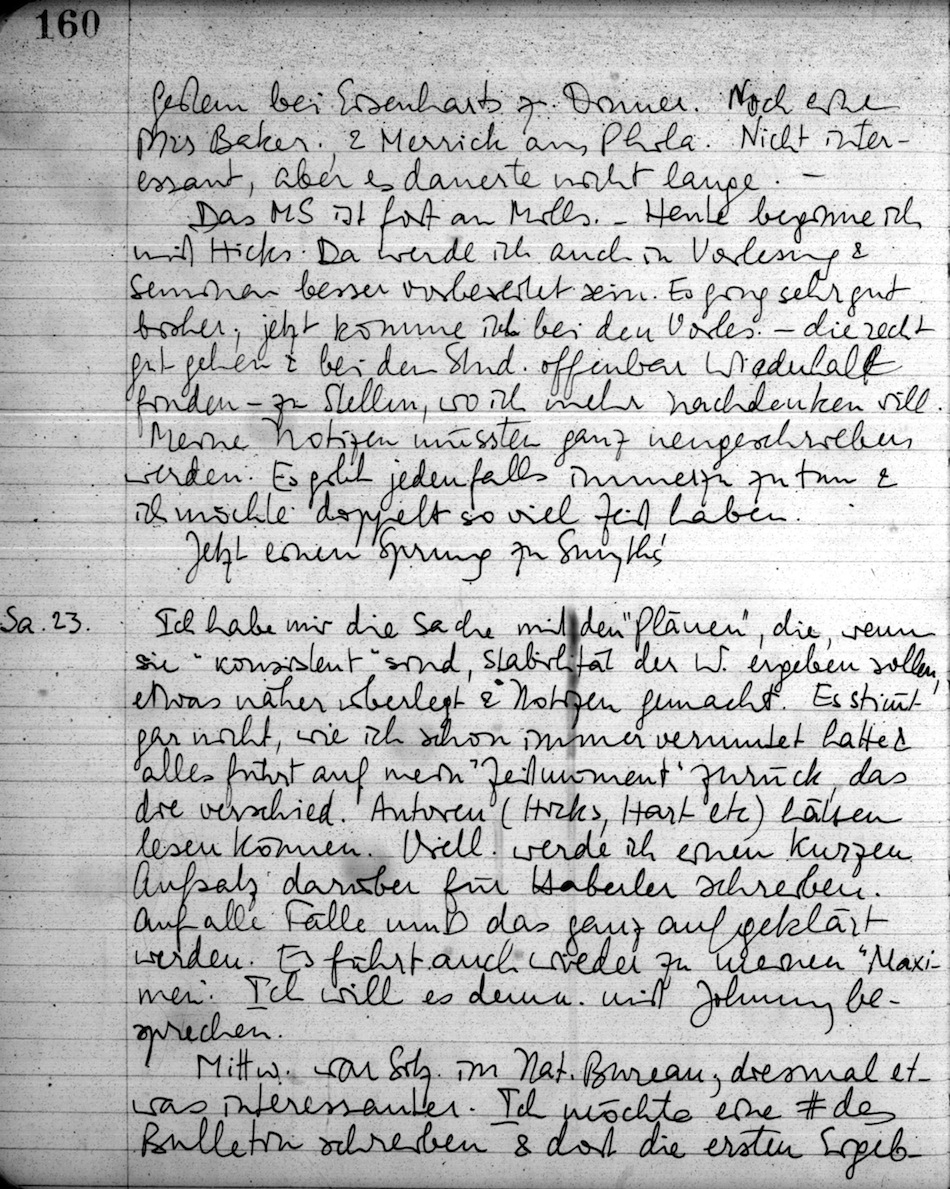 160
gestern bei Eisenharts z. Dinner. Noch eine
Mrs Baker., & Merrick aus Phila. Nicht inter-
essant, aber es dauerte nicht lange. –
Das MS ist fort an Mills. – Heute beginne ich
mit Hicks. Da werde ich auch in Vorlesung &
Seminar besser vorbereitet sein. Es ging sehr gut
bisher; jetzt komme ich bei den Vorles. – die recht
gut gehen & bei den Stud. offenbar Wiederhall
finden – zu Stellen, wo ich mehr nachdenken will.
Meine Notizen müssten ganz neugeschrieben
werden. Es gibt jedenfalls immerzu zu tun &
ich möchte doppelt so viel Zeit haben.
Jetzt einen Sprung zu Smyths'
Sa. 23. Ich habe mir die Sache mit den "Plänen", die, wenn
sie "konsistent" sind, Stabilität der W. ergeben sollen,
etwas näher überlegt & Notizen gemacht. Es stimt
gar nicht, wie ich schon immer vermutet hatte &
alles führt auf mein "Zeitmoment" zurück, das
die verschied. Autoren (Hicks, Hart etc) hätten
lesen können. Viell. werde ich einen kurzen
Aufsatz darüber für Haberler schreiben.
Auf alle Fälle muß das ganz aufgeklärt
werden. Es führt auch wieder zu meinen "Maxi-
men". Ich will es demn. mit Johnny be-
sprechen.
Mittw. war Sitz. im Nat. Bureau, diesmal et-
was interessanter. Ich möchte eine # des
Bulletin schreiben & dort die ersten Ergeb-